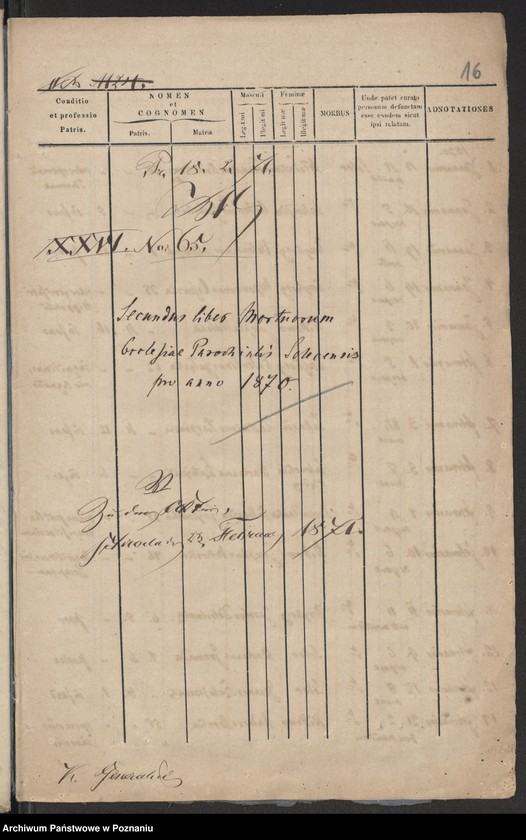 16
Conditio
et professio
Patris.
NOMEN
et
COGNOMEN
Patris.
Matris
Masculi
Legitimi
Illegitimi
Feminæ
Legitimæ
Illegitimæ
MORBUS
Unde patet curato
personam defunctam
esse eandem sicut
ipsi relatam.
ADNOTATIONES
Pr. 18. 2. 71.
XXVI. No. 65.
Secundus liber Mortuorum
Ecclesiae Parochialis Solecensis
pro anno 1870.
Zu den Akten,
Schroda 23. Februar 1871.
Archiwum Państwowe w Poznaniu